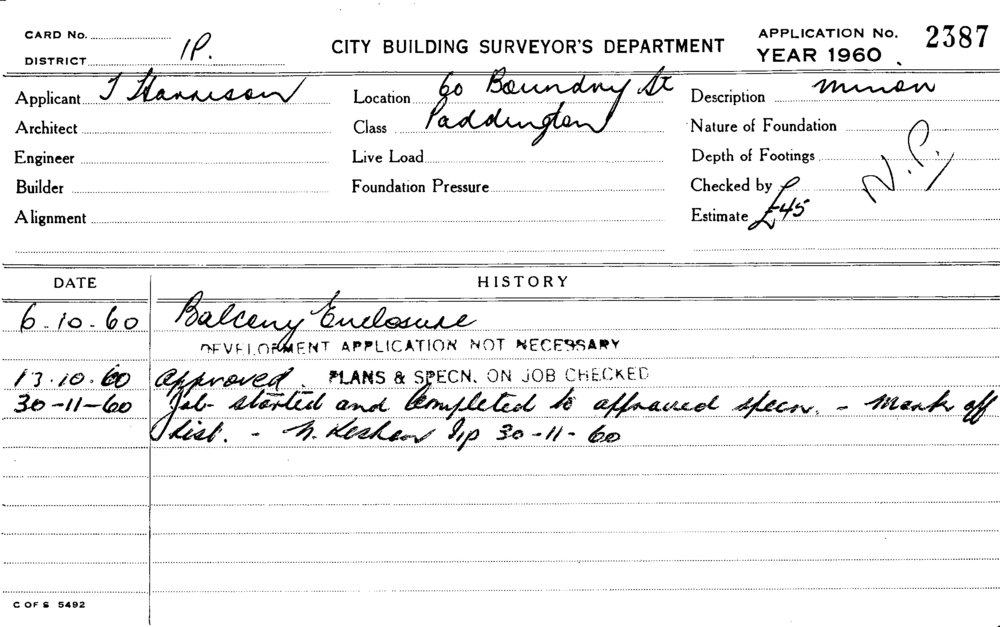 CARD No.
DISTRICT 1P.
CITY BUILDING SURVEYOR'S DEPARTMENT
APPLICATION No. 2387
YEAR 1960
Applicant J Harrison
Location 60 Boundry St
Paddington
Description minor
Architect
Class
Nature of Foundation
Engineer
Live Load
Depth of Footings
N.P.
Builder
Foundation Pressure
Checked by
Alignment
Estimate £45
DATE
HISTORY
6.10.60 Balcony Enclosure
DEVELOPMENT APPLICATION NOT NECESSARY
13.10.60 Approved. PLANS & SPECN. ON JOB CHECKED
30-11-60 Job started and completed to approved specn. - Mark off
list. - 30-11-60
C OF S 5492